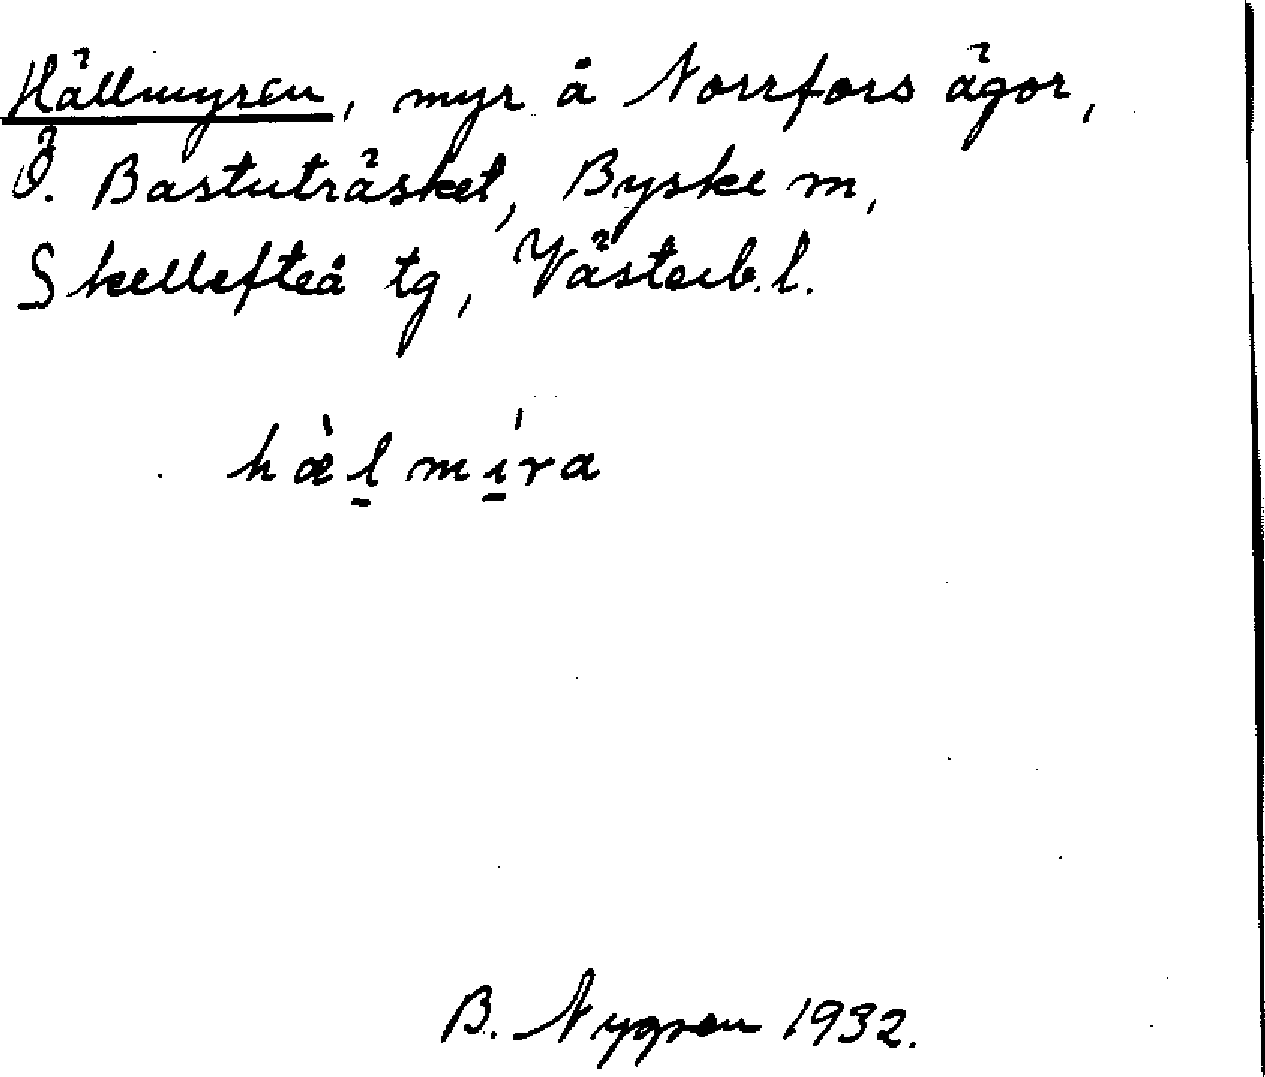 Hällmyren, myr å Norrfors ägor,
Ö. Bastuträsket, Byske m,
Skellefteå tg, Västerb. l.
hæ̀l̠mí̠ra
B. Nygren 1932.